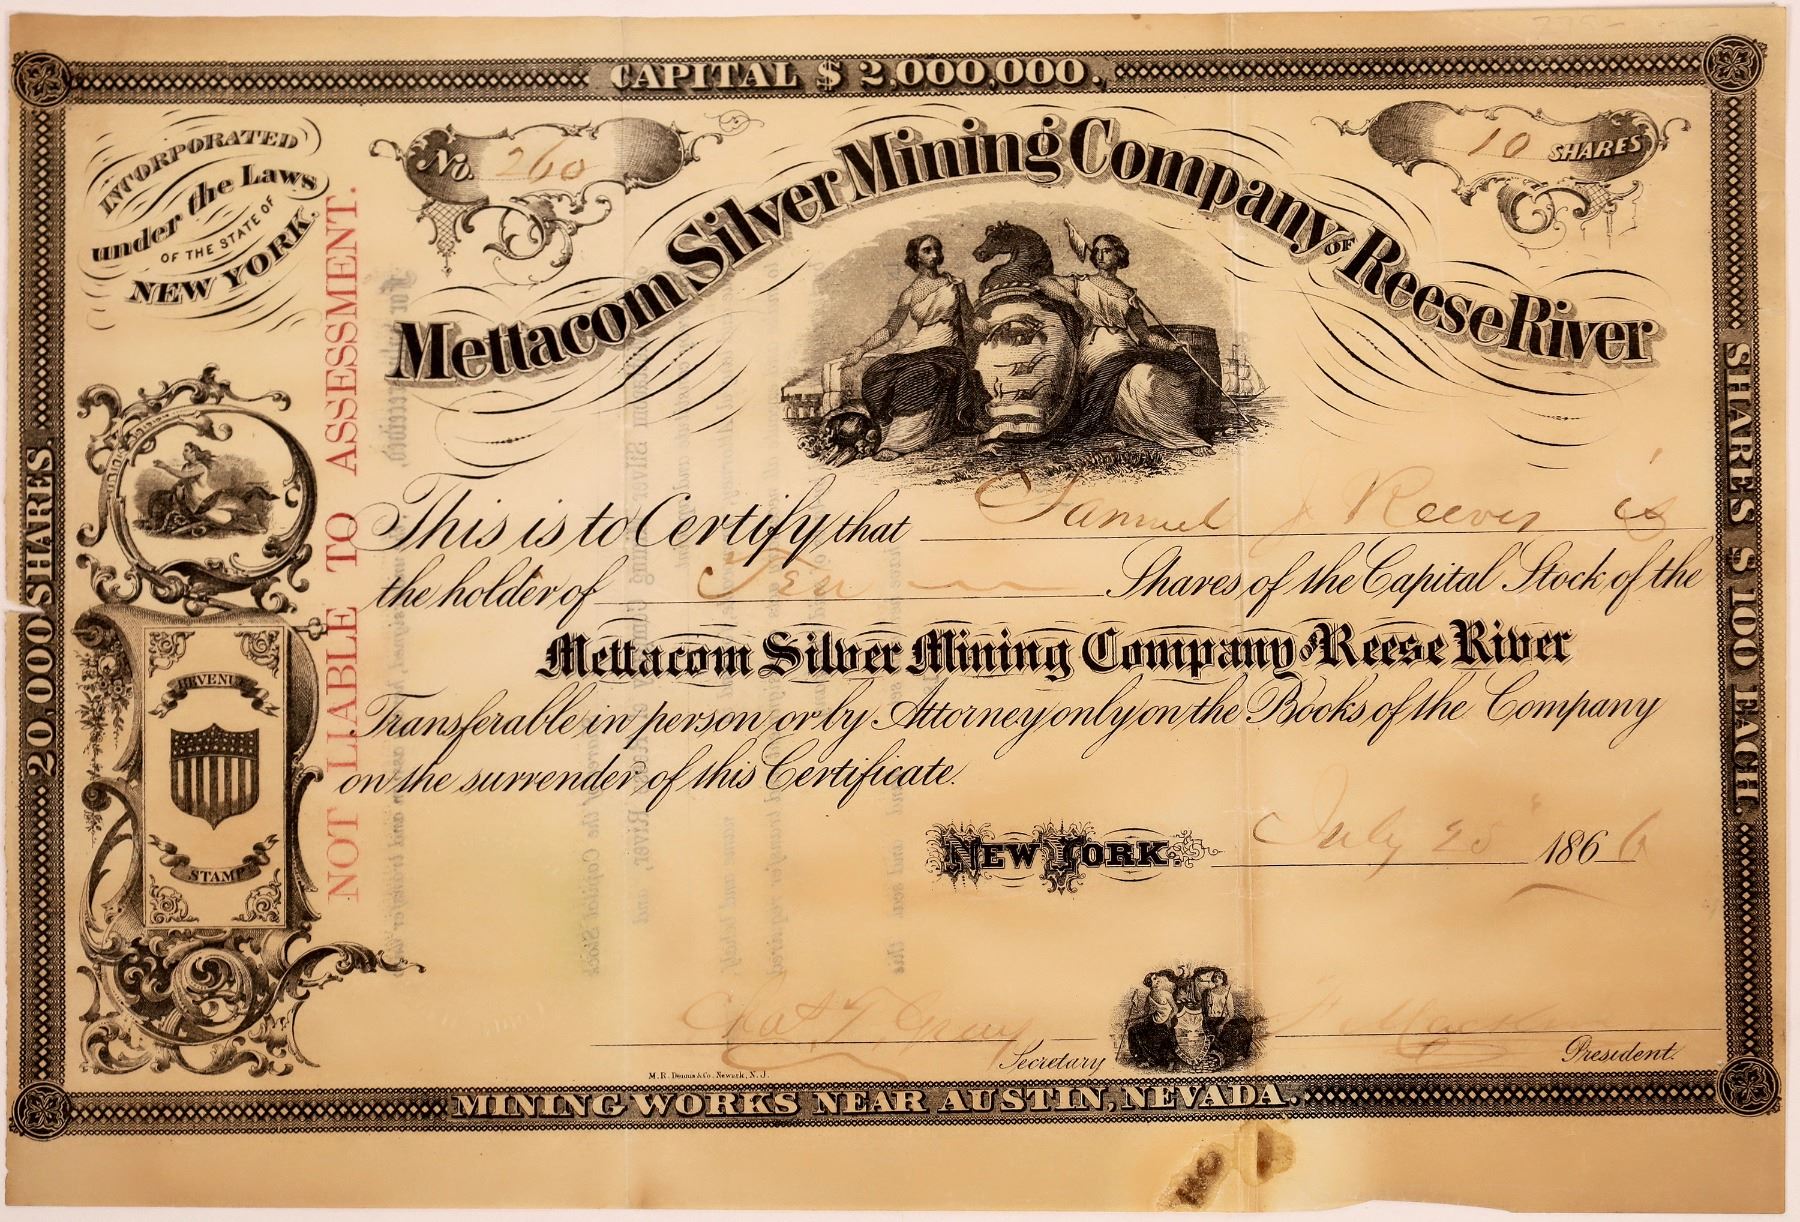 CAPITAL $ 2,000,000.
INCORPORATED
under the Laws
OF THE STATE OF
NEW YORK.
No. 260
10 SHARES
Mettacom Silver Mining Company OF Reese River
20,000 SHARES.
SHARES $ 100 EACH.
NOT LIABLE TO ASSESSMENT.
This is to Certify that Samuel J Reeves is
the holder of Ten Shares of the Capital Stock of the
Mettacom Silver Mining Company OF Reese River
Transferable in person or by Attorney only on the Books of the Company
on the surrender of this Certificate.
REVENUE
STAMP
NEW YORK. July 25 1866
Chas T. Gray
Secretary
President.
M. R. Dennis & Co. Newark, N. J.
MINING WORKS NEAR AUSTIN, NEVADA.